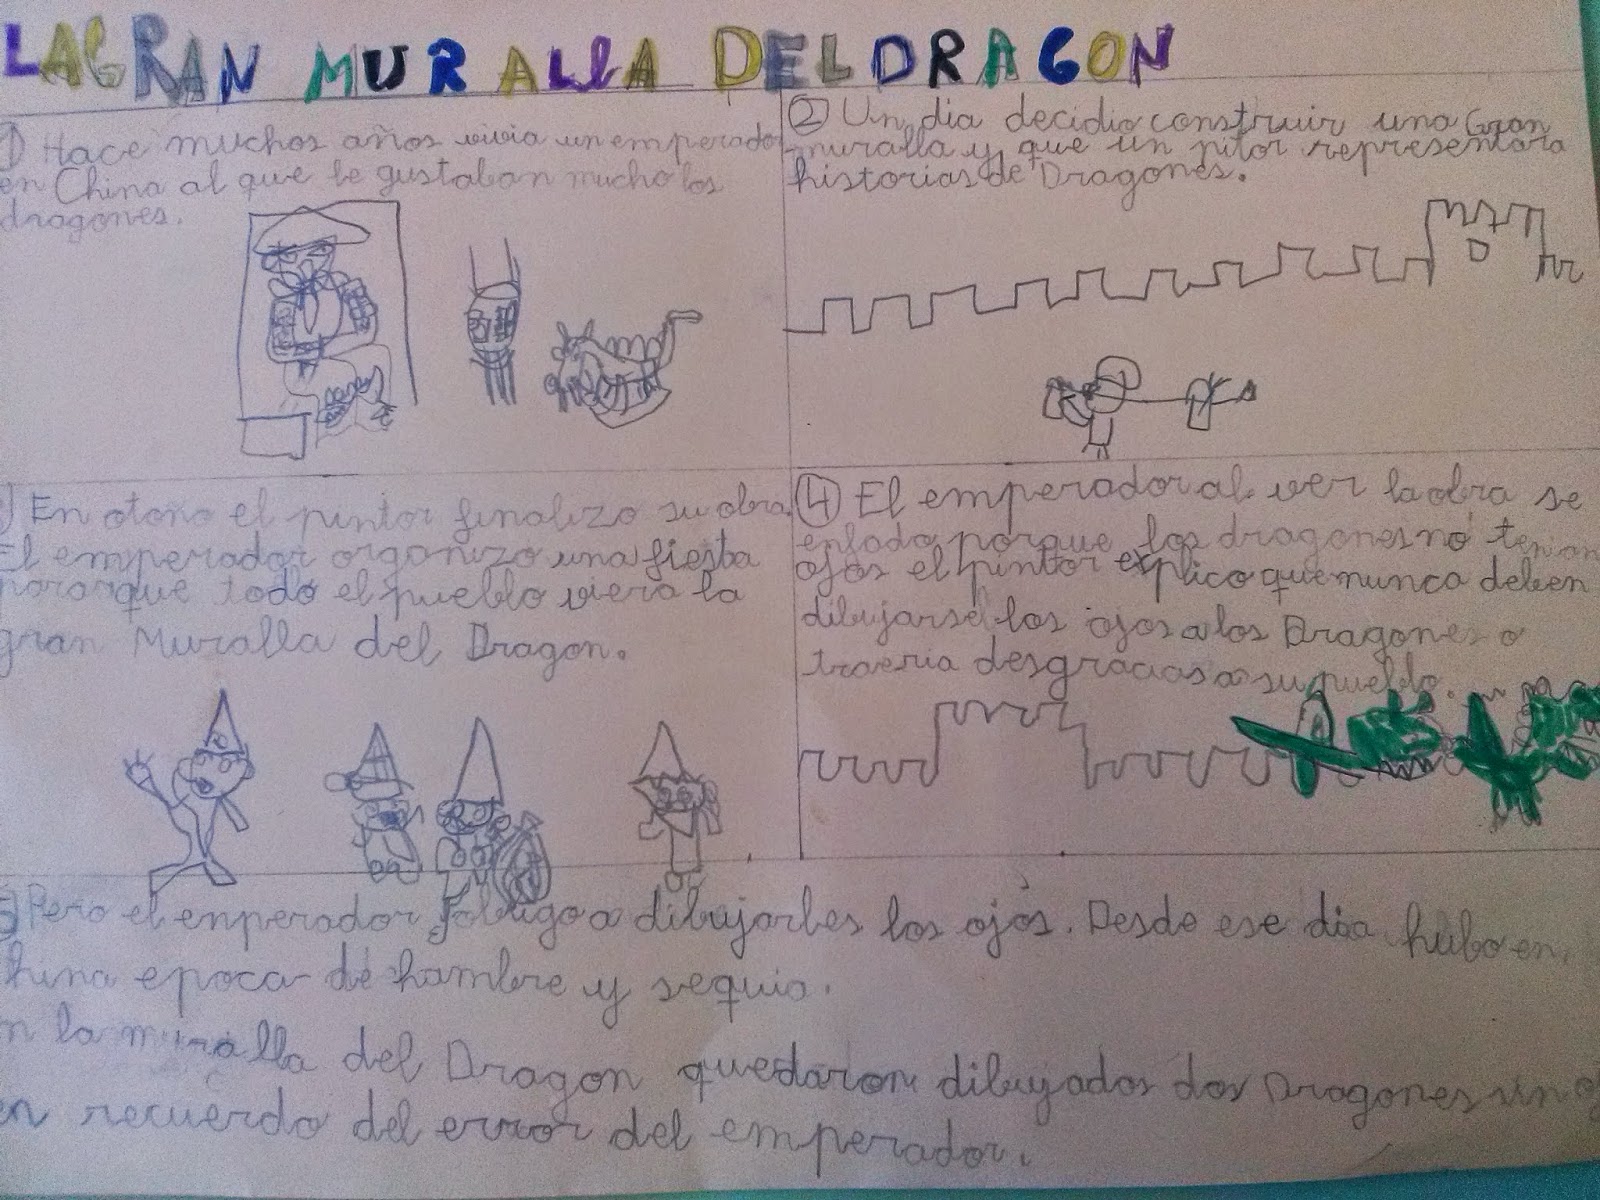 LA GRAN MURALLA DEL DRAGON
1) Hace muchos años vivia un emperador
en China al que le gustaban mucho los
dragones.
2 Un dia decidio construir una Gran
muralla y que un pitor representara
historias de Dragones.
) En otoño el pintor finalizo su obra.
El emperador organizo una fiesta
para que todo el pueblo viera la
gran Muralla del Dragon.
4 El emperador al ver la obra se
enfado porque los dragones no tenian
ojos el pintor explico que nunca deben
dibujarsel los ojos a los Dragones o
traeria desgracias a su pueblo.
5) Pero el enperador obligo a dibujarles los ojos. Desde ese dia hubo en
hina epoca de hambre y sequia.
n la muralla del Dragon quedaron dibujados dos Dragones sin oj
en recuerdo del error del emperador.